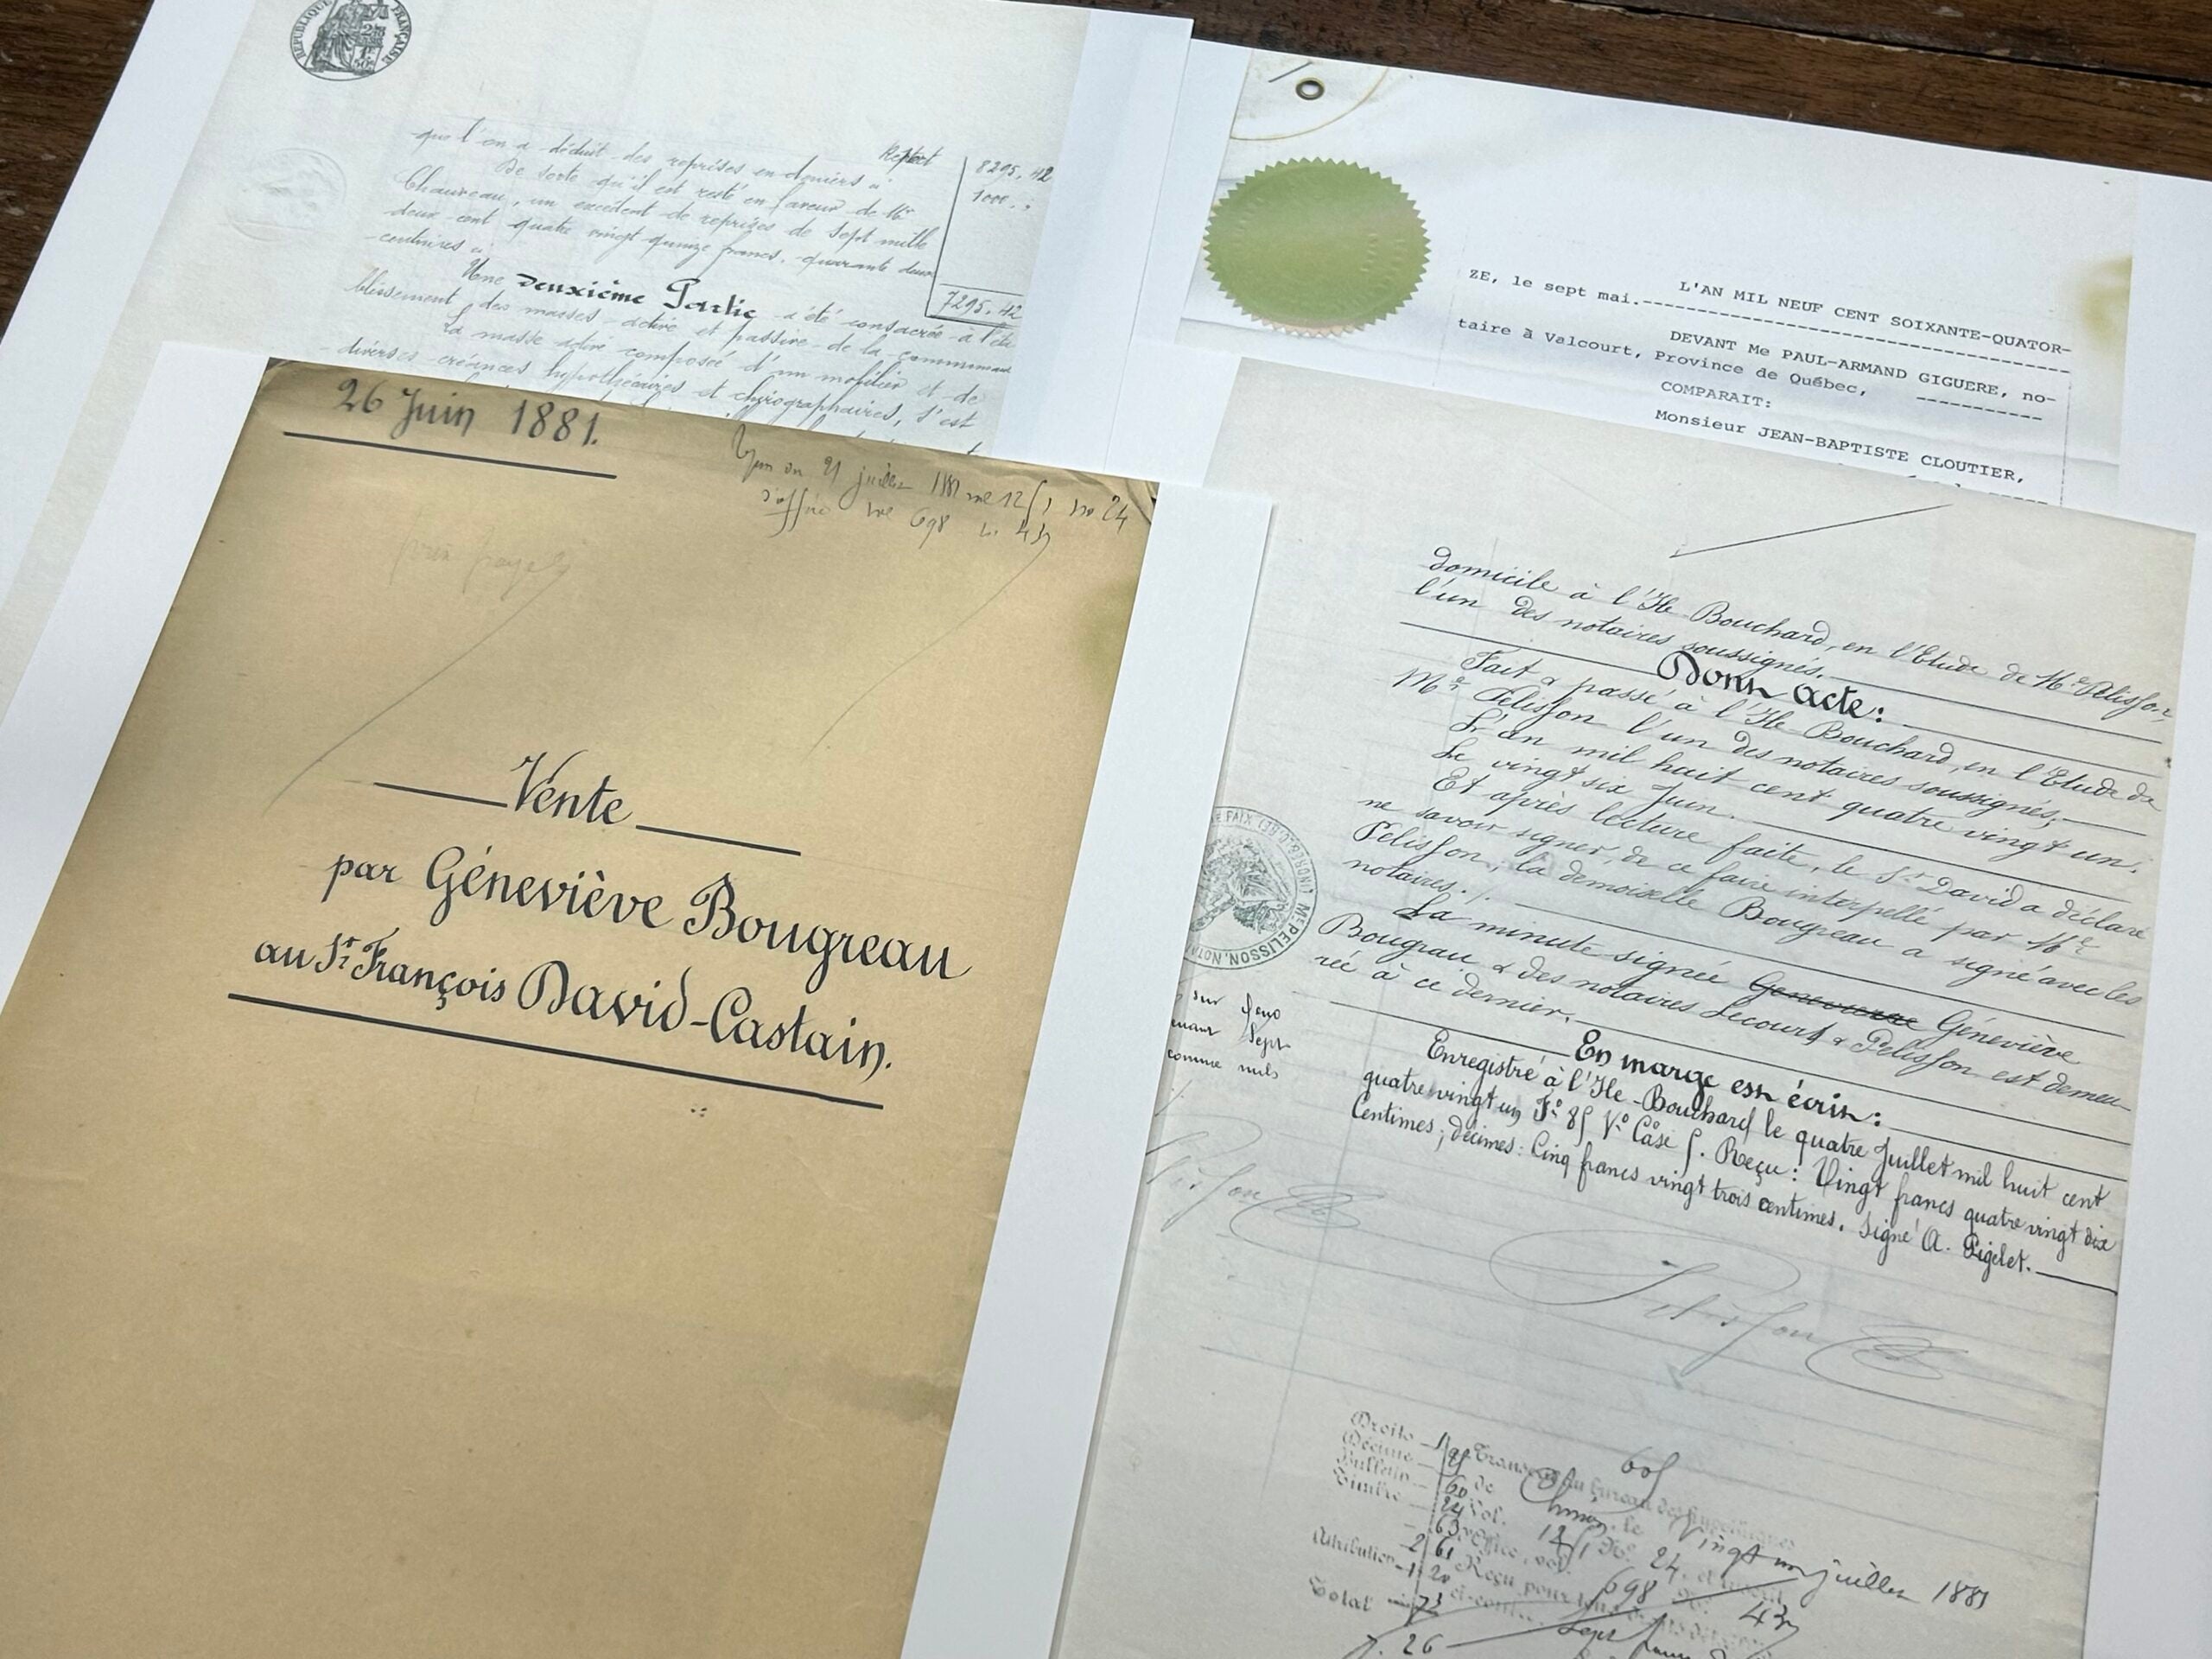 RÉPUBLIQUE FRANÇAISE
que l'on a déduit des reprises en deniers ci
Report
8295.42
1000. "
De sorte qu'il est resté en faveur de Mr
Chauveau, un excédent de reprises de sept mille
deux cent quatre vingt quinze francs, quarante deux
centimes ci
7295.42
Une deuxième Partie a été consacrée à l'éta
blissement des masses active et passive de la communauté
La masse active composée d'un mobilier et de
diverses créances hypothécaires et chirographaires, s'est
L'AN MIL NEUF CENT SOIXANTE-QUATOR-
ZE, le sept mai.
DEVANT Me PAUL-ARMAND GIGUERE, no-
taire à Valcourt, Province de Québec,
COMPARAIT:
Monsieur JEAN-BAPTISTE CLOUTIER,
26 Juin 1881.
21 juillet 1881 vol 12 no 24
d'office vol 698 43
Vente
par Géneviève Bougreau
au Sr. François David-Castain.
domicile à l'Ile Bouchard, en l'Etude de Me Pelisson
l'un des notaires soussignés.
Dont acte:
Fait & passé à l'Ile Bouchard, en l'Etude de
Me Pelisson l'un des notaires soussignés,
L'an mil huit cent quatre vingt un.
Le vingt six Juin.
Et après lecture faite, le Sr. David a déclaré
ne savoir signer, de ce faire interpellé par Me
Pelisson, la demoiselle Bougreau a signé avec les
notaires.
La minute signée Géneviève
Bougrau & des notaires Lecourt & Pelisson est demeu-
rée à ce dernier.
Me PELISSON, NOTAI
sur
sept
comme nuls
En marge est écrit:
Enregistré à l'Ile-Bouchard le quatre Juillet mil huit cent
quatre vingt un, Fo. 85 Vo. Case 5. Reçu: Vingt francs quatre vingt dix
Centimes; décimes: Cinq francs vingt trois centimes. Signé A. Pigelet.
Pelisson
605
Droits
Décime
Bulletin 60
Timbre 24
63
2 61
Attribution 1 20
Total
de Chinon, le Vingt un juillet 1881
Vol. 12 No. 24
d'office, vol. 698 No. 43
Reçu pour
ci-contre
26